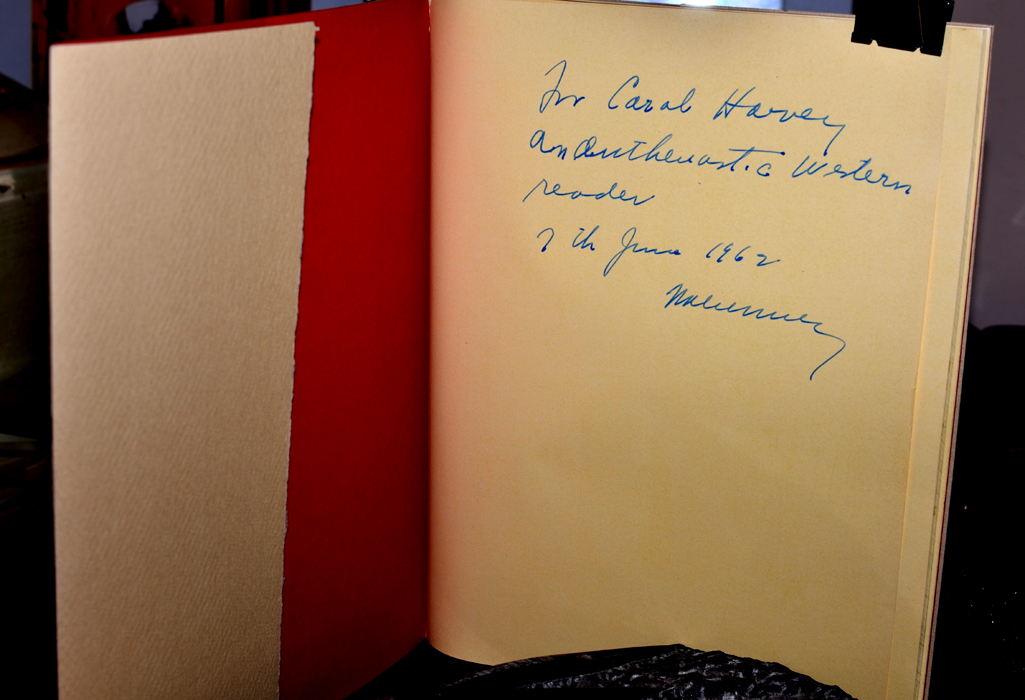 For Carol Harvey
an enthusastic Western
reader
7th June 1962